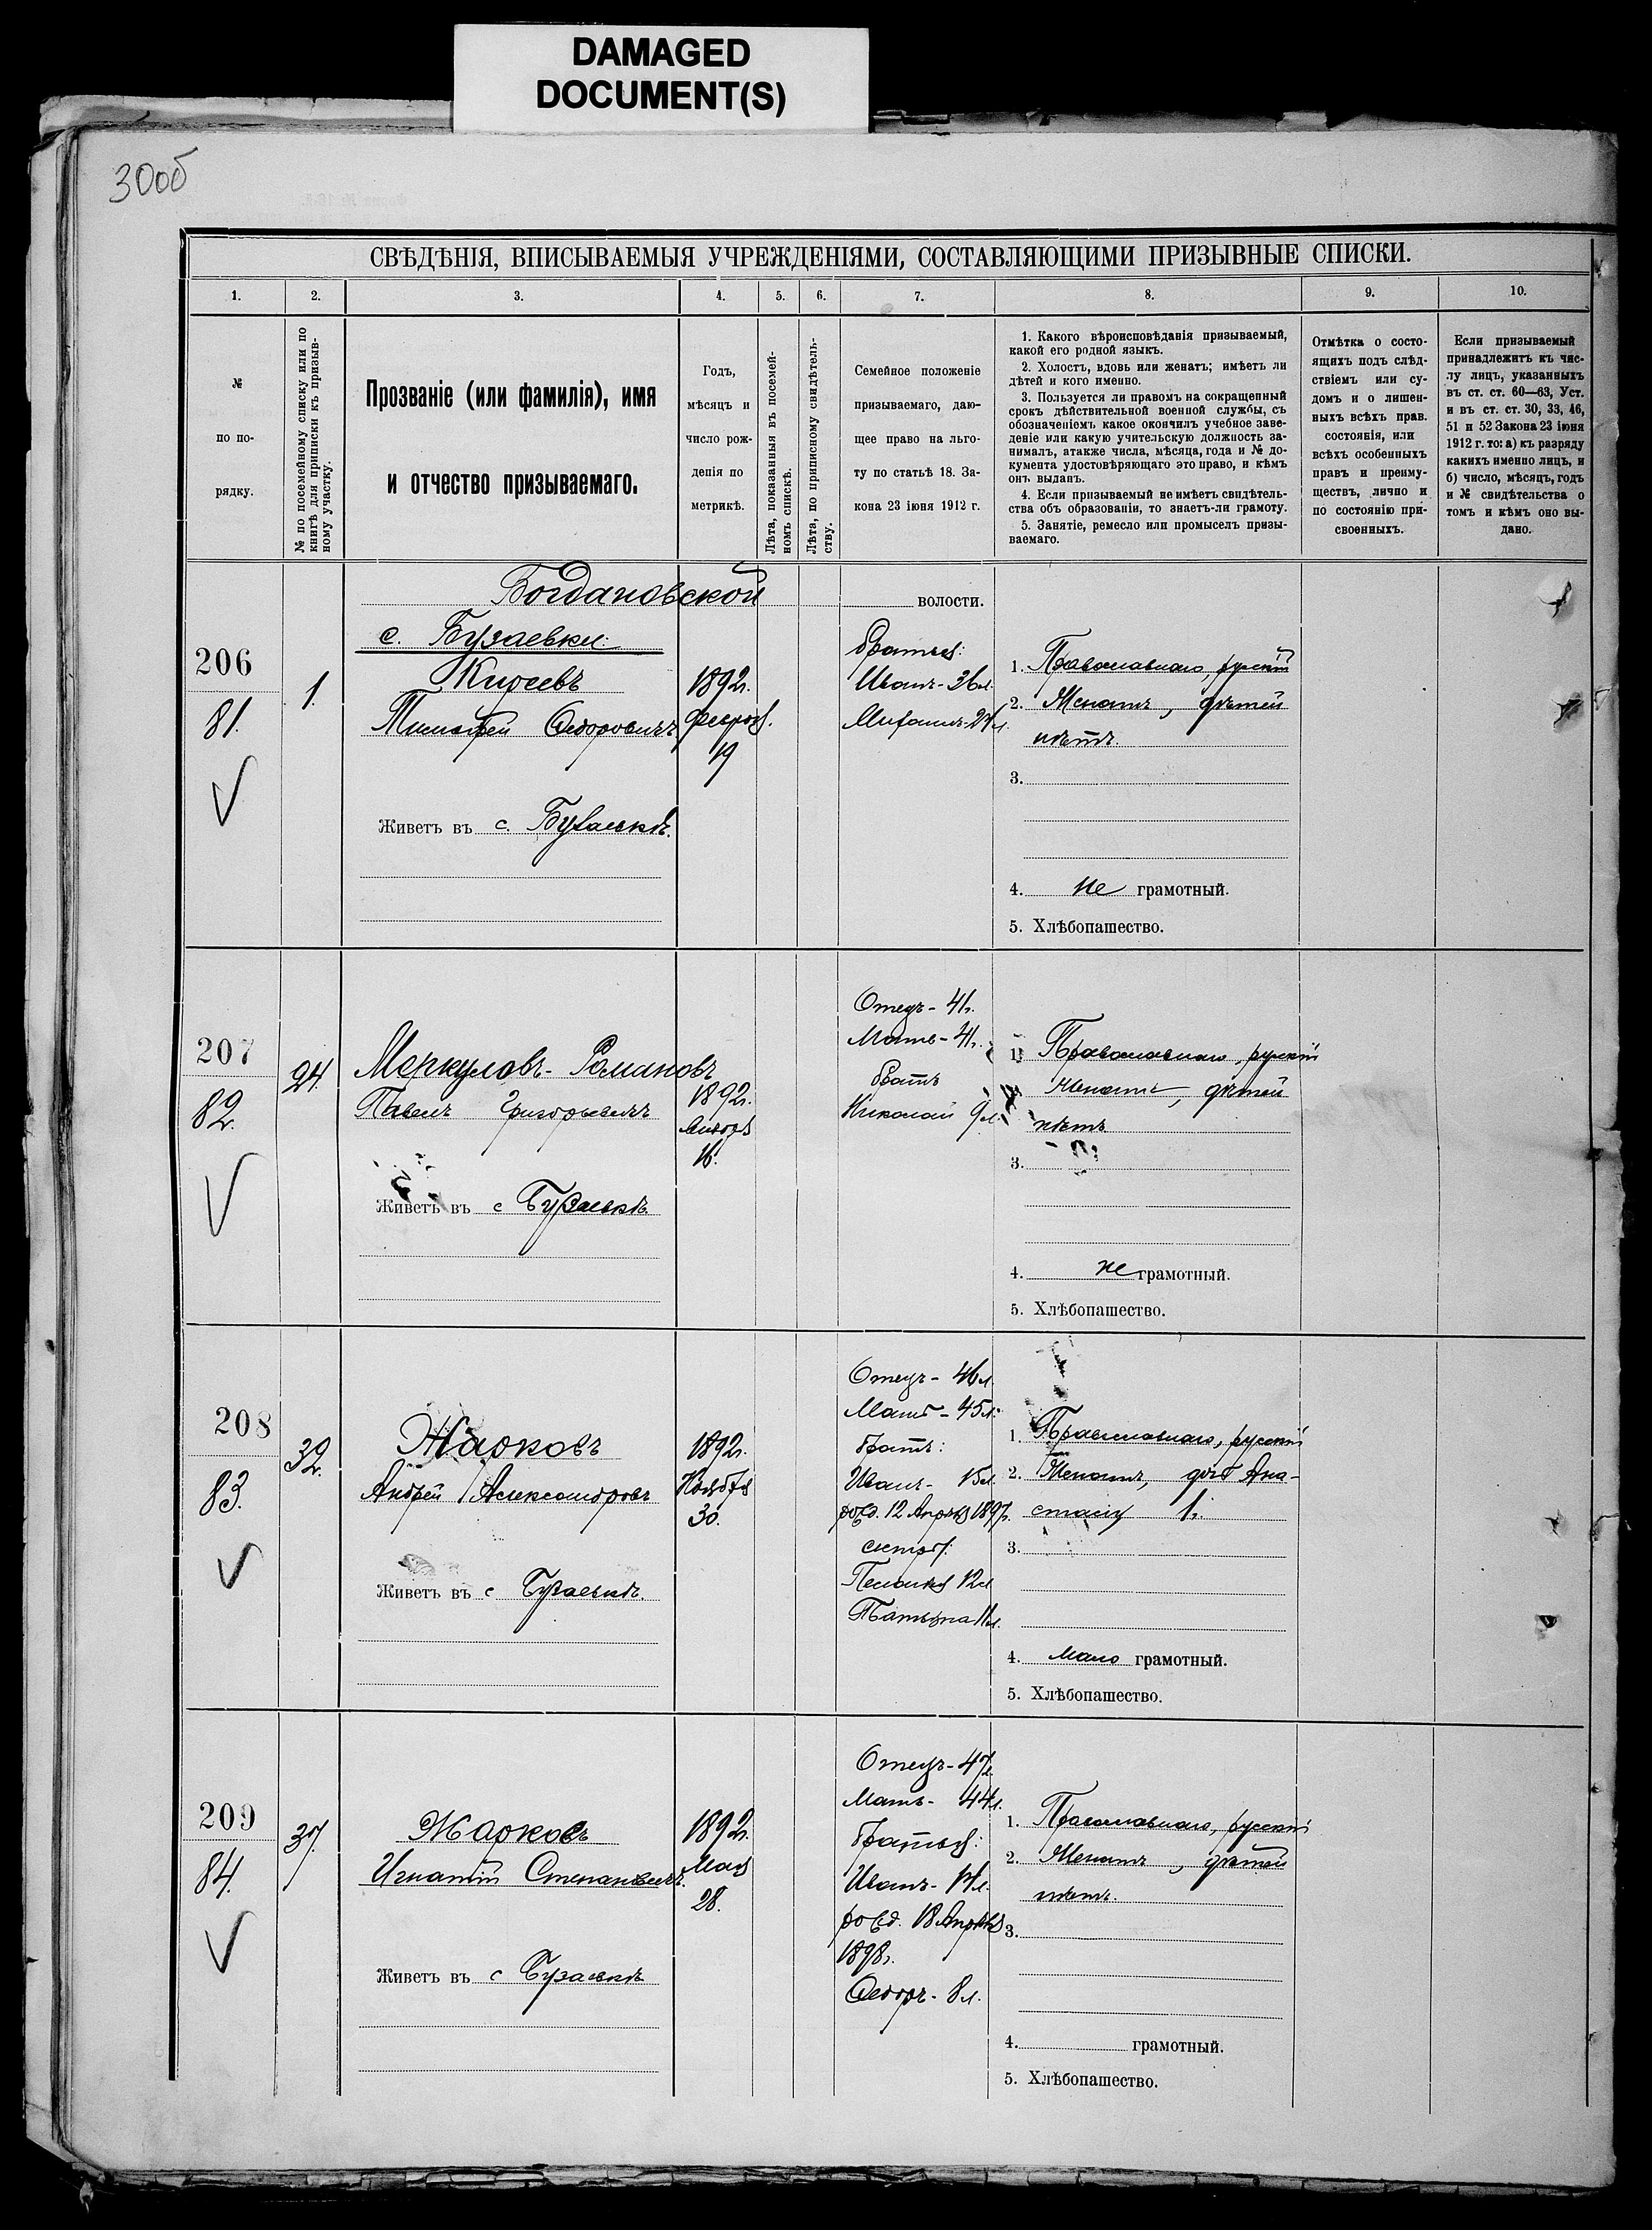 DAMAGED
DOCUMENT(S)
30об
СВѢДѢНІЯ, ВПИСЫВАЕМЫЯ УЧРЕЖДЕНІЯМИ, СОСТАВЛЯЮЩИМИ ПРИЗЫВНЫЕ СПИСКИ.
1. 2. 3. 4. 5. 6. 7. 8. 9. 10.
№
по по-
рядку.
№ по посемейному списку или по
книгѣ для приписки къ призыв-
ному участку.
Прозваніе (или фамилія), имя
и отчество призываемаго.
Годъ,
мѣсяцъ и
число рож-
денія по
метрикѣ.
Лѣта, показанныя въ посемей-
номъ спискѣ.
Лѣта, по приписному свидѣтель-
ству.
Семейное положеніе
призываемаго, даю-
щее право на льго-
ту по статьѣ 18. За-
кона 23 іюня 1912 г.
1. Какого вѣроисповѣданія призываемый,
какой его родной языкъ.
2. Холостъ, вдовъ или женатъ; имѣетъ ли
дѣтей и кого именно.
3. Пользуется ли правомъ на сокращенный
срокъ дѣйствительной военной службы, съ
обозначеніемъ какое окончилъ учебное заве-
деніе или какую учительскую должность за-
нималъ, атакже числа, мѣсяца, года и № до-
кумента удостовѣряющаго это право, и кѣмъ
онъ выданъ.
4. Если призываемый не имѣетъ свидѣтель-
ства объ образованіи, то знаетъ-ли грамоту.
5. Занятіе, ремесло или промыселъ призы-
ваемаго.
Отмѣтка о состо-
ящихъ подъ слѣд-
ствіемъ или су-
домъ и о лишен-
ныхъ всѣхъ прав.
состоянія, или
всѣхъ особенныхъ
правъ и преиму-
ществъ, лично и
по состоянію при-
своенныхъ.
Если призываемый
принадлежитъ къ чис-
лу лицъ, указанныхъ
въ ст. ст. 60—63, Уст.
и въ ст. ст. 30, 33, 46,
51 и 52 Закона 23 іюня
1912 г. то: а) къ разряду
какихъ именно лицъ, и
б) число, мѣсяцъ, годъ
и № свидѣтельства о
томъ и кѣмъ оно вы-
дано.
Богдановской волости.
с. Бузаевки:
206
81.
1.
Киреевъ
Тимофей Федоровичъ
Живетъ въ с. Бузаевкѣ.
1892г.
Февраля.
19
братья:
Иванъ - 36л.
Михаилъ - 24л.
1. Православнаго, русскій
2. Женатъ, дѣтей
нѣтъ.
3.
4. не грамотный.
5. Хлѣбопашество.
207
82.
24.
Меркуловъ - Романовъ
Павелъ Григорьевичъ
Живетъ въ с Бузаевкѣ
1892г.
Января
16.
Отецъ - 41г.
Мать - 41г.
братъ
Николай 9л.
1. Православнаго, русскій
Женатъ, дѣтей
нѣтъ
3.
4. не грамотный.
5. Хлѣбопашество.
208
83.
32.
Жарковъ
Андрей Александровъ
Живетъ въ с Бузаевкѣ.
1892г.
Ноября
30.
Отецъ - 46л.
Мать - 45л.
братъ:
Иванъ - 15л.
рожд. 12 Апрѣля 1897г.
сестры:
Пелагея 12л
Татьяна 11л.
1. Православнаго, русскій
2. Женатъ, дочь Ана-
стасія 1г.
3.
4. мало грамотный.
5. Хлѣбопашество.
209
84.
37.
Жарковъ
Игнатій Степановичъ.
Живетъ въ с Бузаевкѣ
1892г.
Мая
28.
Отецъ - 47л.
Мать - 44л.
братья:
Иванъ - 14л.
рожд. 18 Апрѣля
1898г.
Федоръ - 8л.
1. Православнаго, русскій
2. Женатъ, дѣтей
нѣтъ.
3.
4. грамотный.
5. Хлѣбопашество.